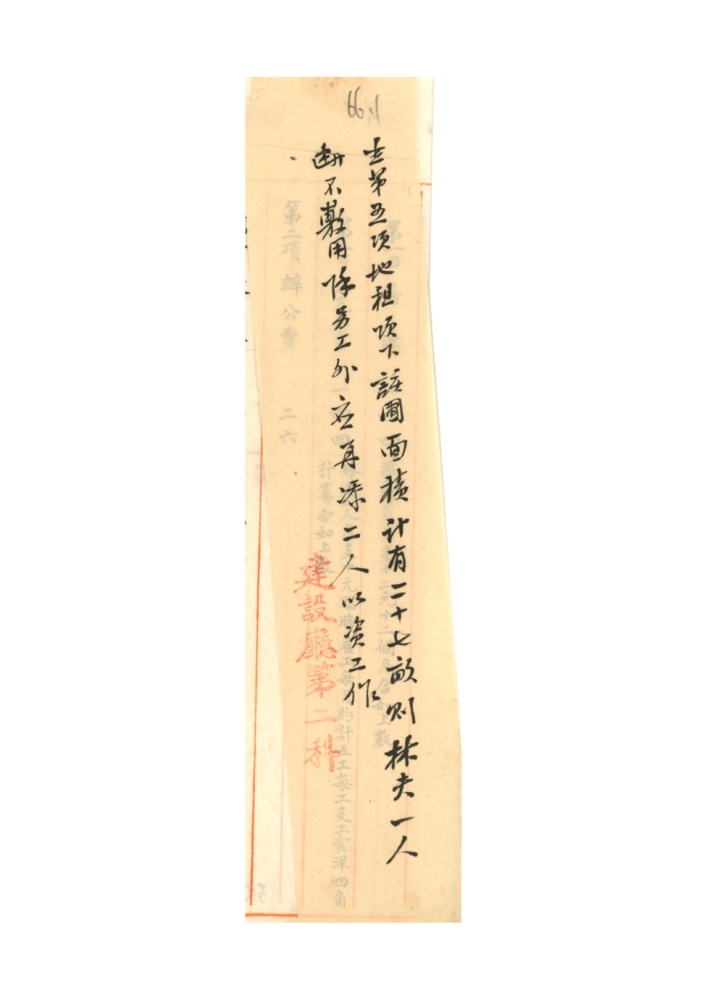 查第五項地租項下該圃面積計有二十七畝则林夫一人
断不敷用除另工外应再添二人以资工作
建設廳第二科
第二項辦公費 二六
計算合如上
元
約計五工每工支工食洋四角